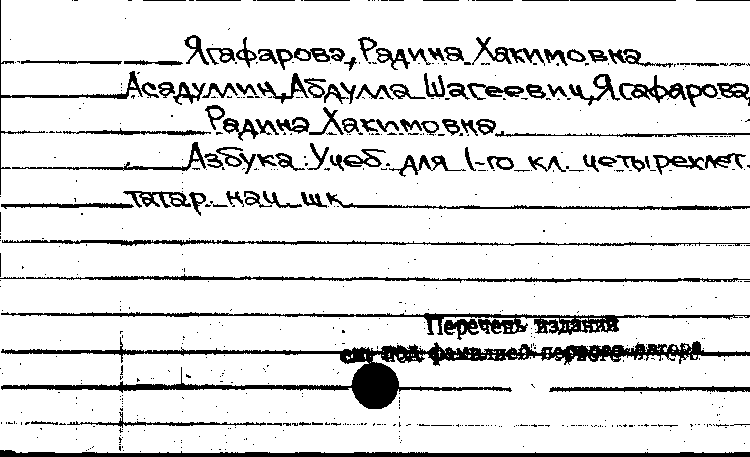 Ягафарова, Радина Хакимовна
Асадуллин, Абдулла Шагеевич, Ягафарова,
Радина Хакимовна.
Азбука: Учеб. для 1-го кл. четырехлет.
татар. нач. шк.
Перечень изданий
см. под фамилией первого автора